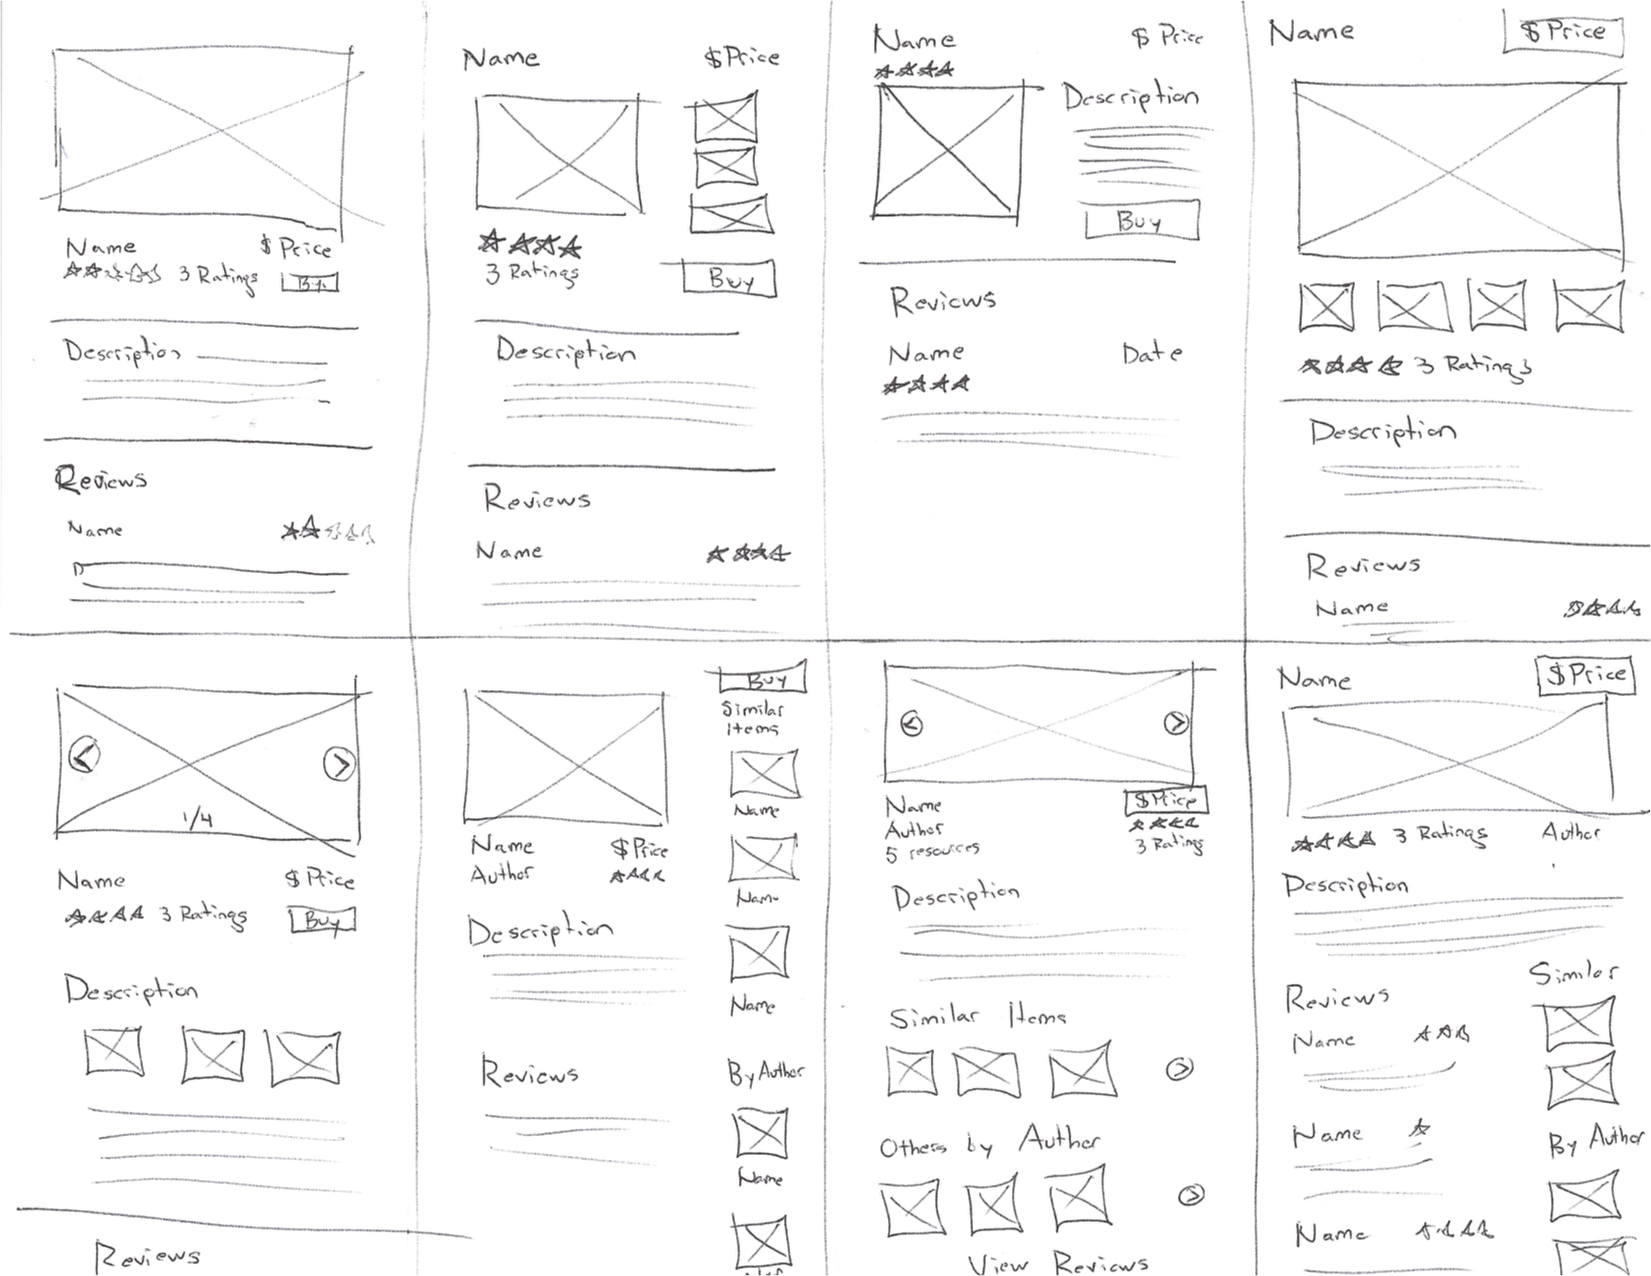 Name $ Price
3 Ratings Buy
Description
Reviews
Name
Name $ Price
3 Ratings
Buy
Description
Reviews
Name
Name $ Price
Description
Buy
Reviews
Name Date
Name $ Price
3 Ratings
Description
Reviews
Name
< >
1/4
Name $ Price
3 Ratings Buy
Description
Reviews
Buy
Similar
Items
Name
Name $ Price
Author
Name
Description
Name
Reviews
By Author
Name
< >
Name $ Price
Author
5 resources 3 Ratings
Description
Similar Items
>
Others by Author
>
View Reviews
Name $ Price
3 Ratings Author
Description
Similar
Reviews
Name
Name
By Author
Name